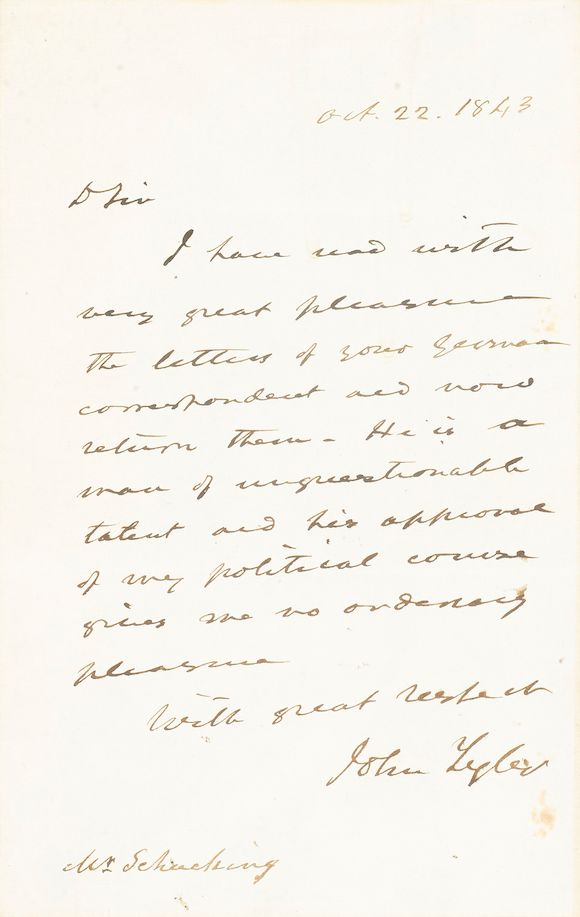 Oct. 22. 1843
D Sir
I have read with
very great pleasure
the letters of your German
correspondent and now
return them - He is a
man of unquestionable
talent and his approval
of my political course
gives me no ordinary
pleasure
With great respect
John Tyler
Mr. Schucking